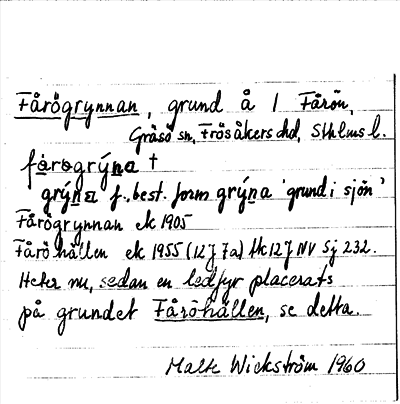 Fårögrynnan, grund å 1 Fårön,
Gräsö sn, Frösåkers hd, Sthlms l.
fårogrýna †
grýna f., best. form grýna 'grund i sjön'
Fårögrynnan ek 1905
Fåröhällen ek 1955 (12J 7a) Hk 12J NV Sj 232.
Heter nu, sedan en ledfyr placerats
på grundet Fåröhällen, se detta.
Malte Wickström 1960